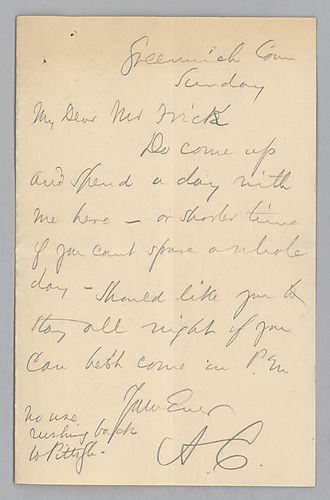 Greenwich Conn
Sunday
My Dear Mr Frick
Do come up
and spend a day with
me here – or shorter time
if you cant spare a whole
day – should like you to
stay all night if you
can
come in P.M
Yours Ever
A. C.
no use
rushing back
to Pittsgh.